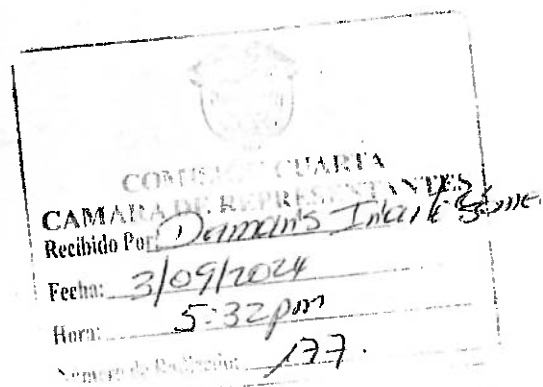 COMISIÓN CUARTA
CAMARA DE REPRESENTANTES
Recibido Por: Damaris
Fecha: 3/09/2024
Hora: 5:32pm
Numero de Radicación: 177.